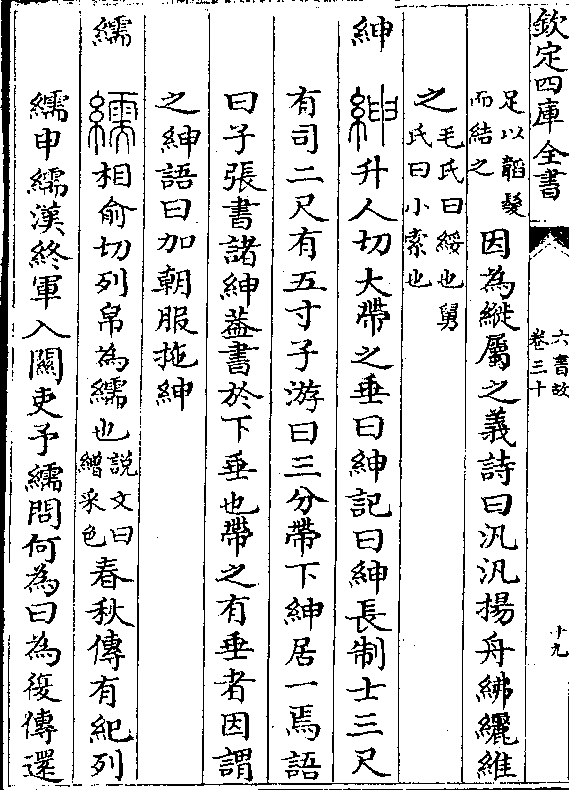 欽定四庫全書
六書故
卷三十
十九
足以韜髮
而結之
因為縰屬之義詩曰汎汎揚舟紼纚維
之
毛氏曰綏也舅
氏曰小索也
紳
紳升人切大帶之垂曰紳記曰紳長制士三尺
有司二尺有五寸子游曰三分帶下紳居一焉語
曰子張書諸紳葢書於下垂也帶之有垂者因謂
之紳語曰加朝服拖紳
繻
繻相俞切列帛為繻也
說文曰
繒采色
春秋傳有紀列
繻申繻漢終軍入關吏予繻問何為曰為復傳還